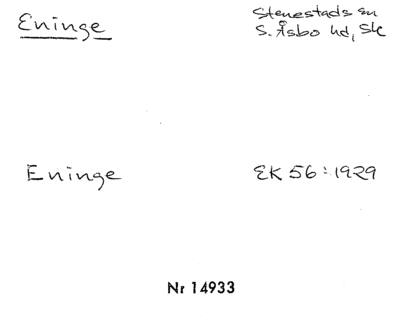 Eninge
Stenestads sn
S. Åsbo hd, Sk
Eninge
EK 56:1929
Nr 14933